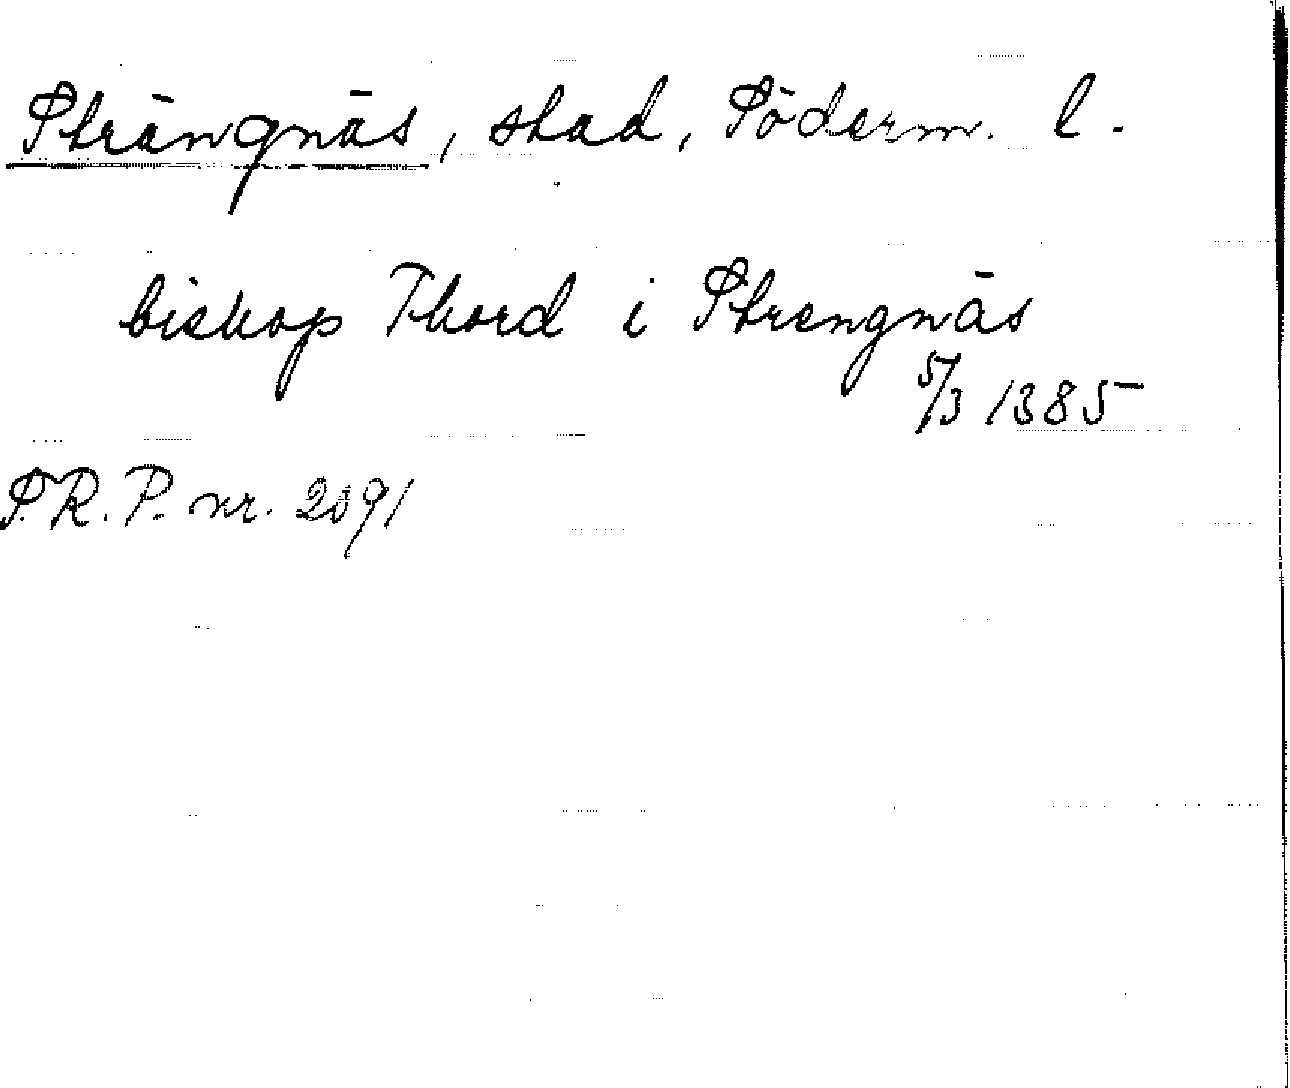 Strängnäs, stad, Söderm. l.
biskop Thord i Strengnäs
5/3 1385
S.R.P. nr. 2091